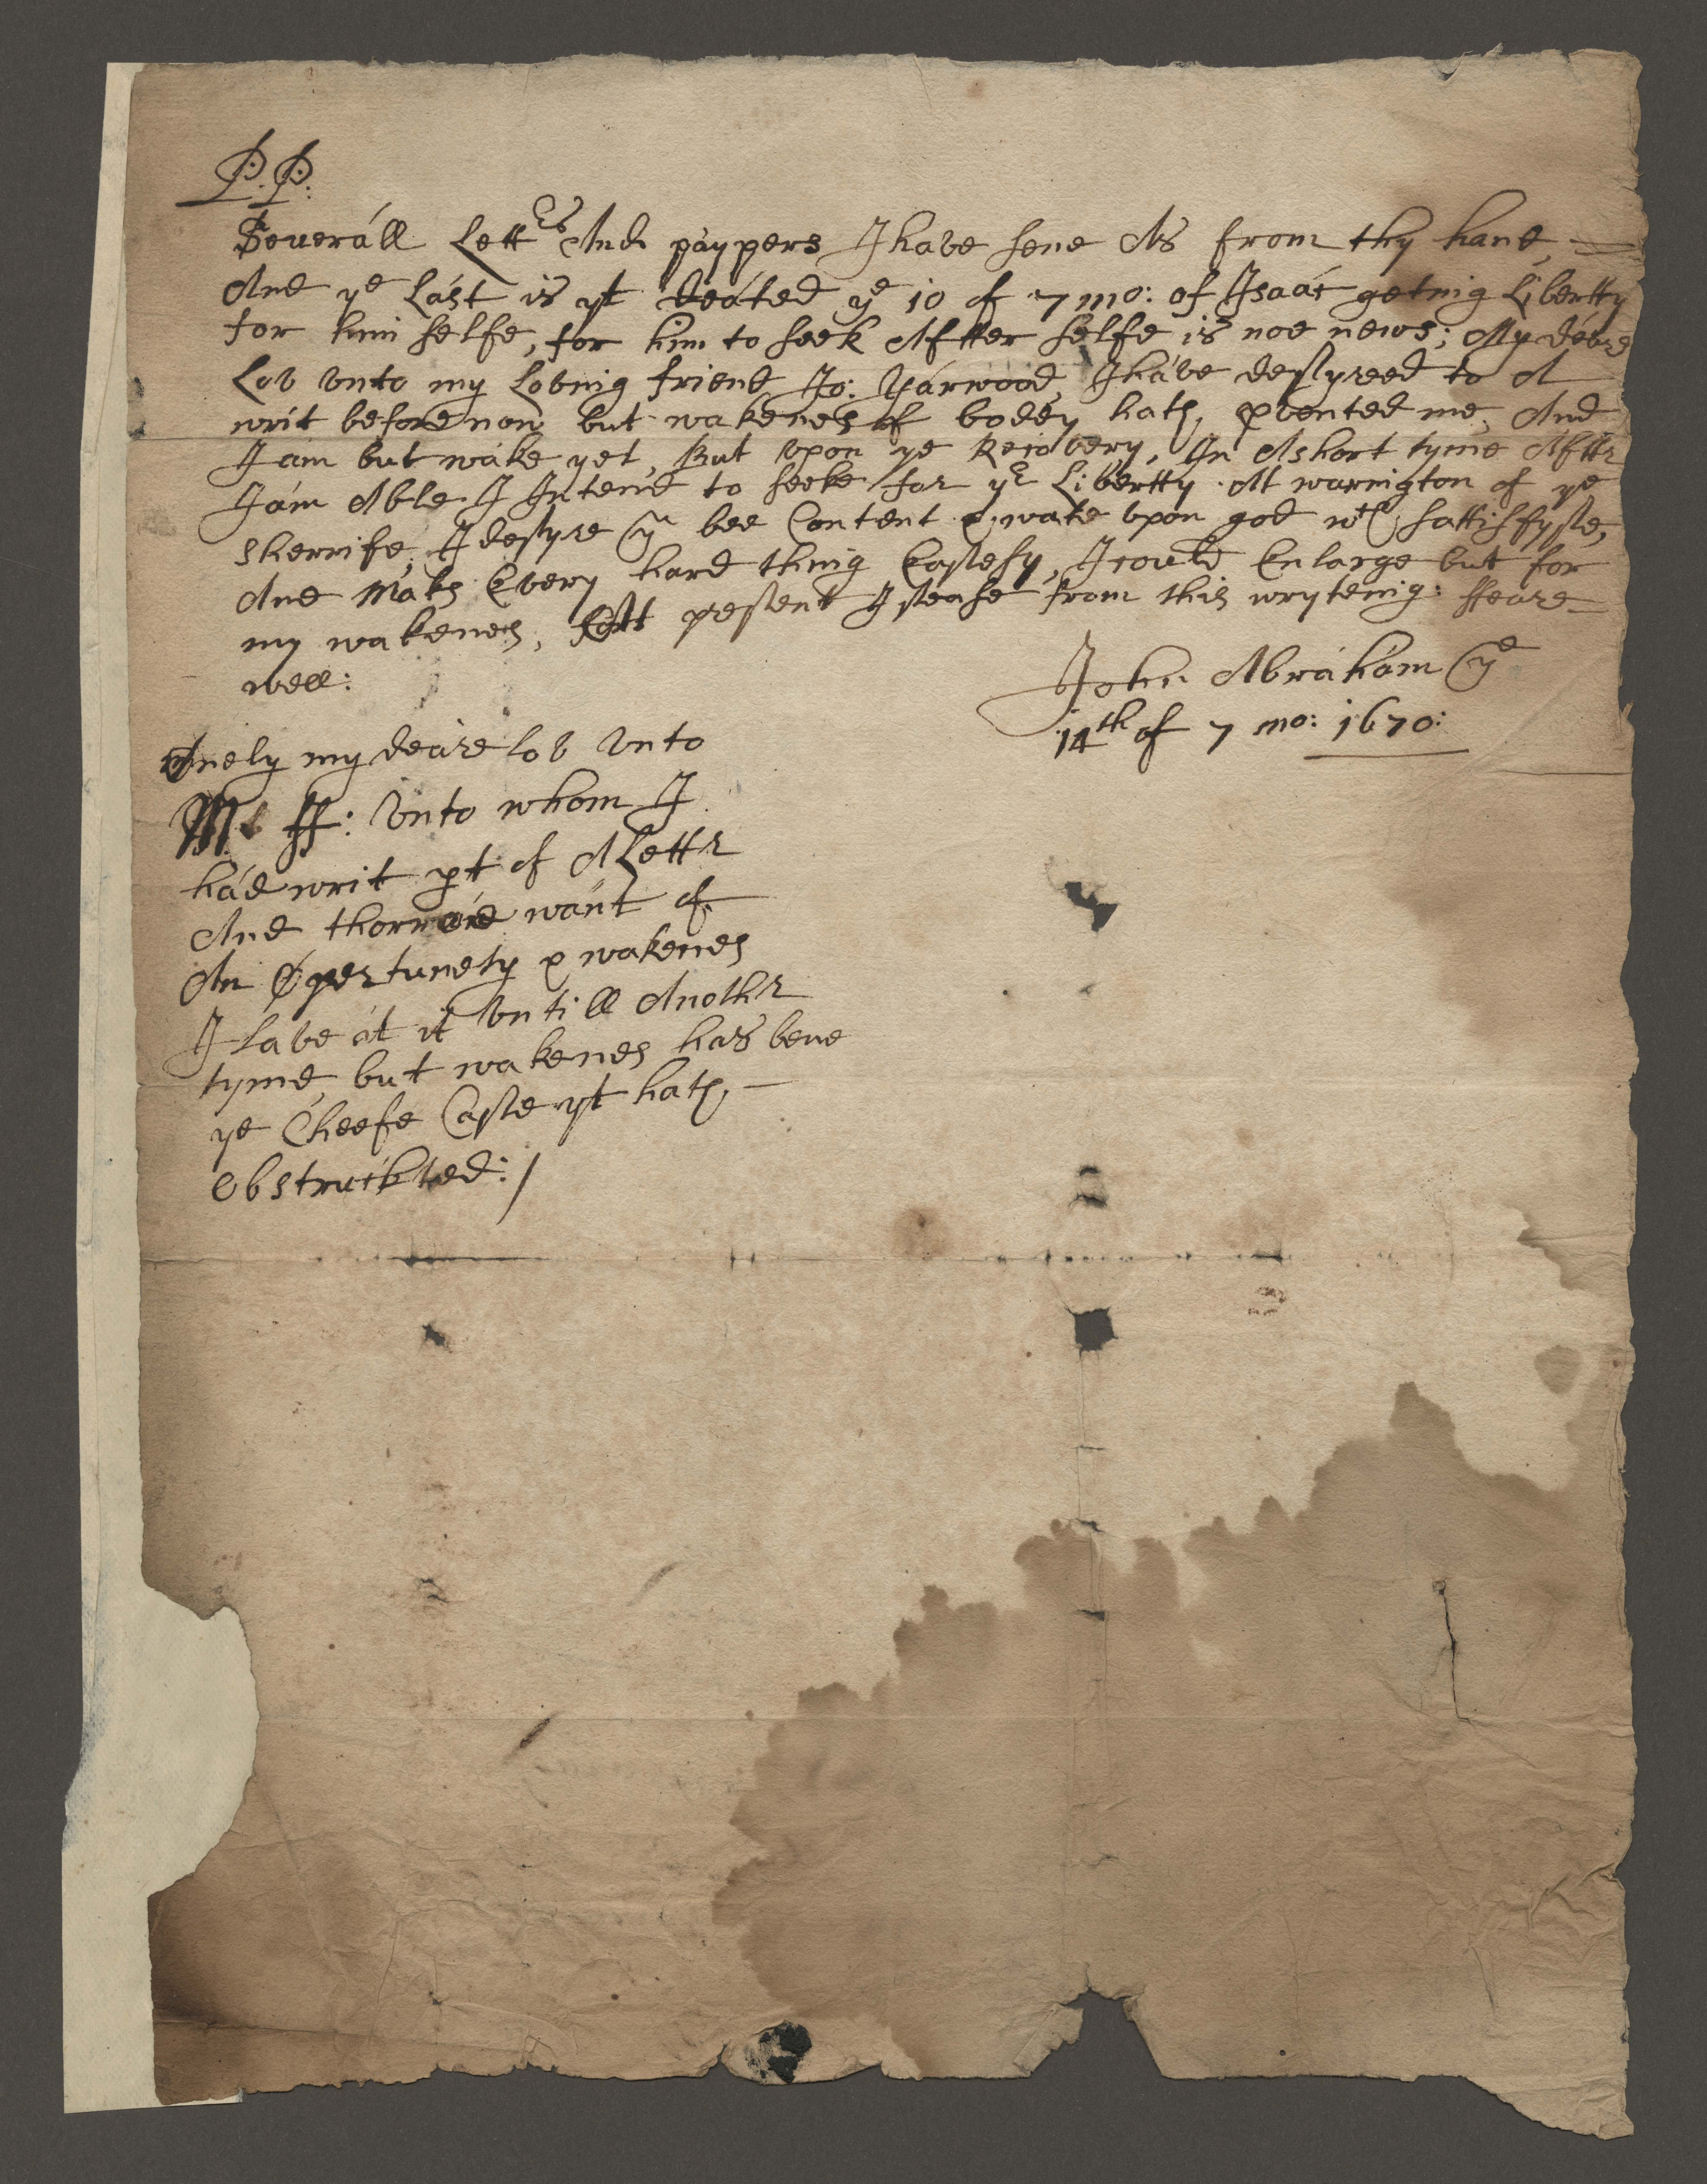 P: P:
Severall Lett es And paypers I have sene As from thy hand,
And ye Last is yt deated ye 10 of 7 mo: of Isaac geting Libertty
for him selfe, for him to seek Aftter selfe is noe news; My deare
Lov Unto my Loving friend Jo: Yarwood, I have desyreed to A
writ before now but wakenes of boddy hath pvented me, And
I am but wake yet, But Upon ye Recovery, In A short tyme Afttr
I am Able I Intend to seeke for yr Libertty At warington of ye
Sherrife, I desyre ym bee Content & wate Upon god wch sattisfyse,
And Maks Every hard thing Easesy, I could Enlarge but for
my wakenes, present I sease from this wryteing: ffeare
well:
John Abraham ye
14th of 7 mo: 1670:
Onely my deare lov Unto
M: ff: Unto whom I
had writ pt of A Lettr
And thorrow want of
An Opertunety & wakenes
I lave at it Untill Anothr
tyme, but wakenes has bene
ye Cheefe Case yt hath
Obstruckted: /